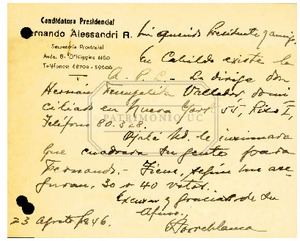 Candidatura Presidencial
Fernando Alessandri R.
Secretaría Provincial
Mi querido Presidente y amigo:
En Cabildo existe la
A.P.L. - La dirige don
Hernán Vallados, domi
ciliado en Nueva York 55, Piso I,
Teléfono 80.328.
Ojalá Ud. le insinuara
que cuadrara su gente para
Fernando. - Tiene, según me ase-
guran, 30 o 40 votos.
Excusas y gracias de su
Afmo.
23 Agosto 1946.
PATRIMONIO UC